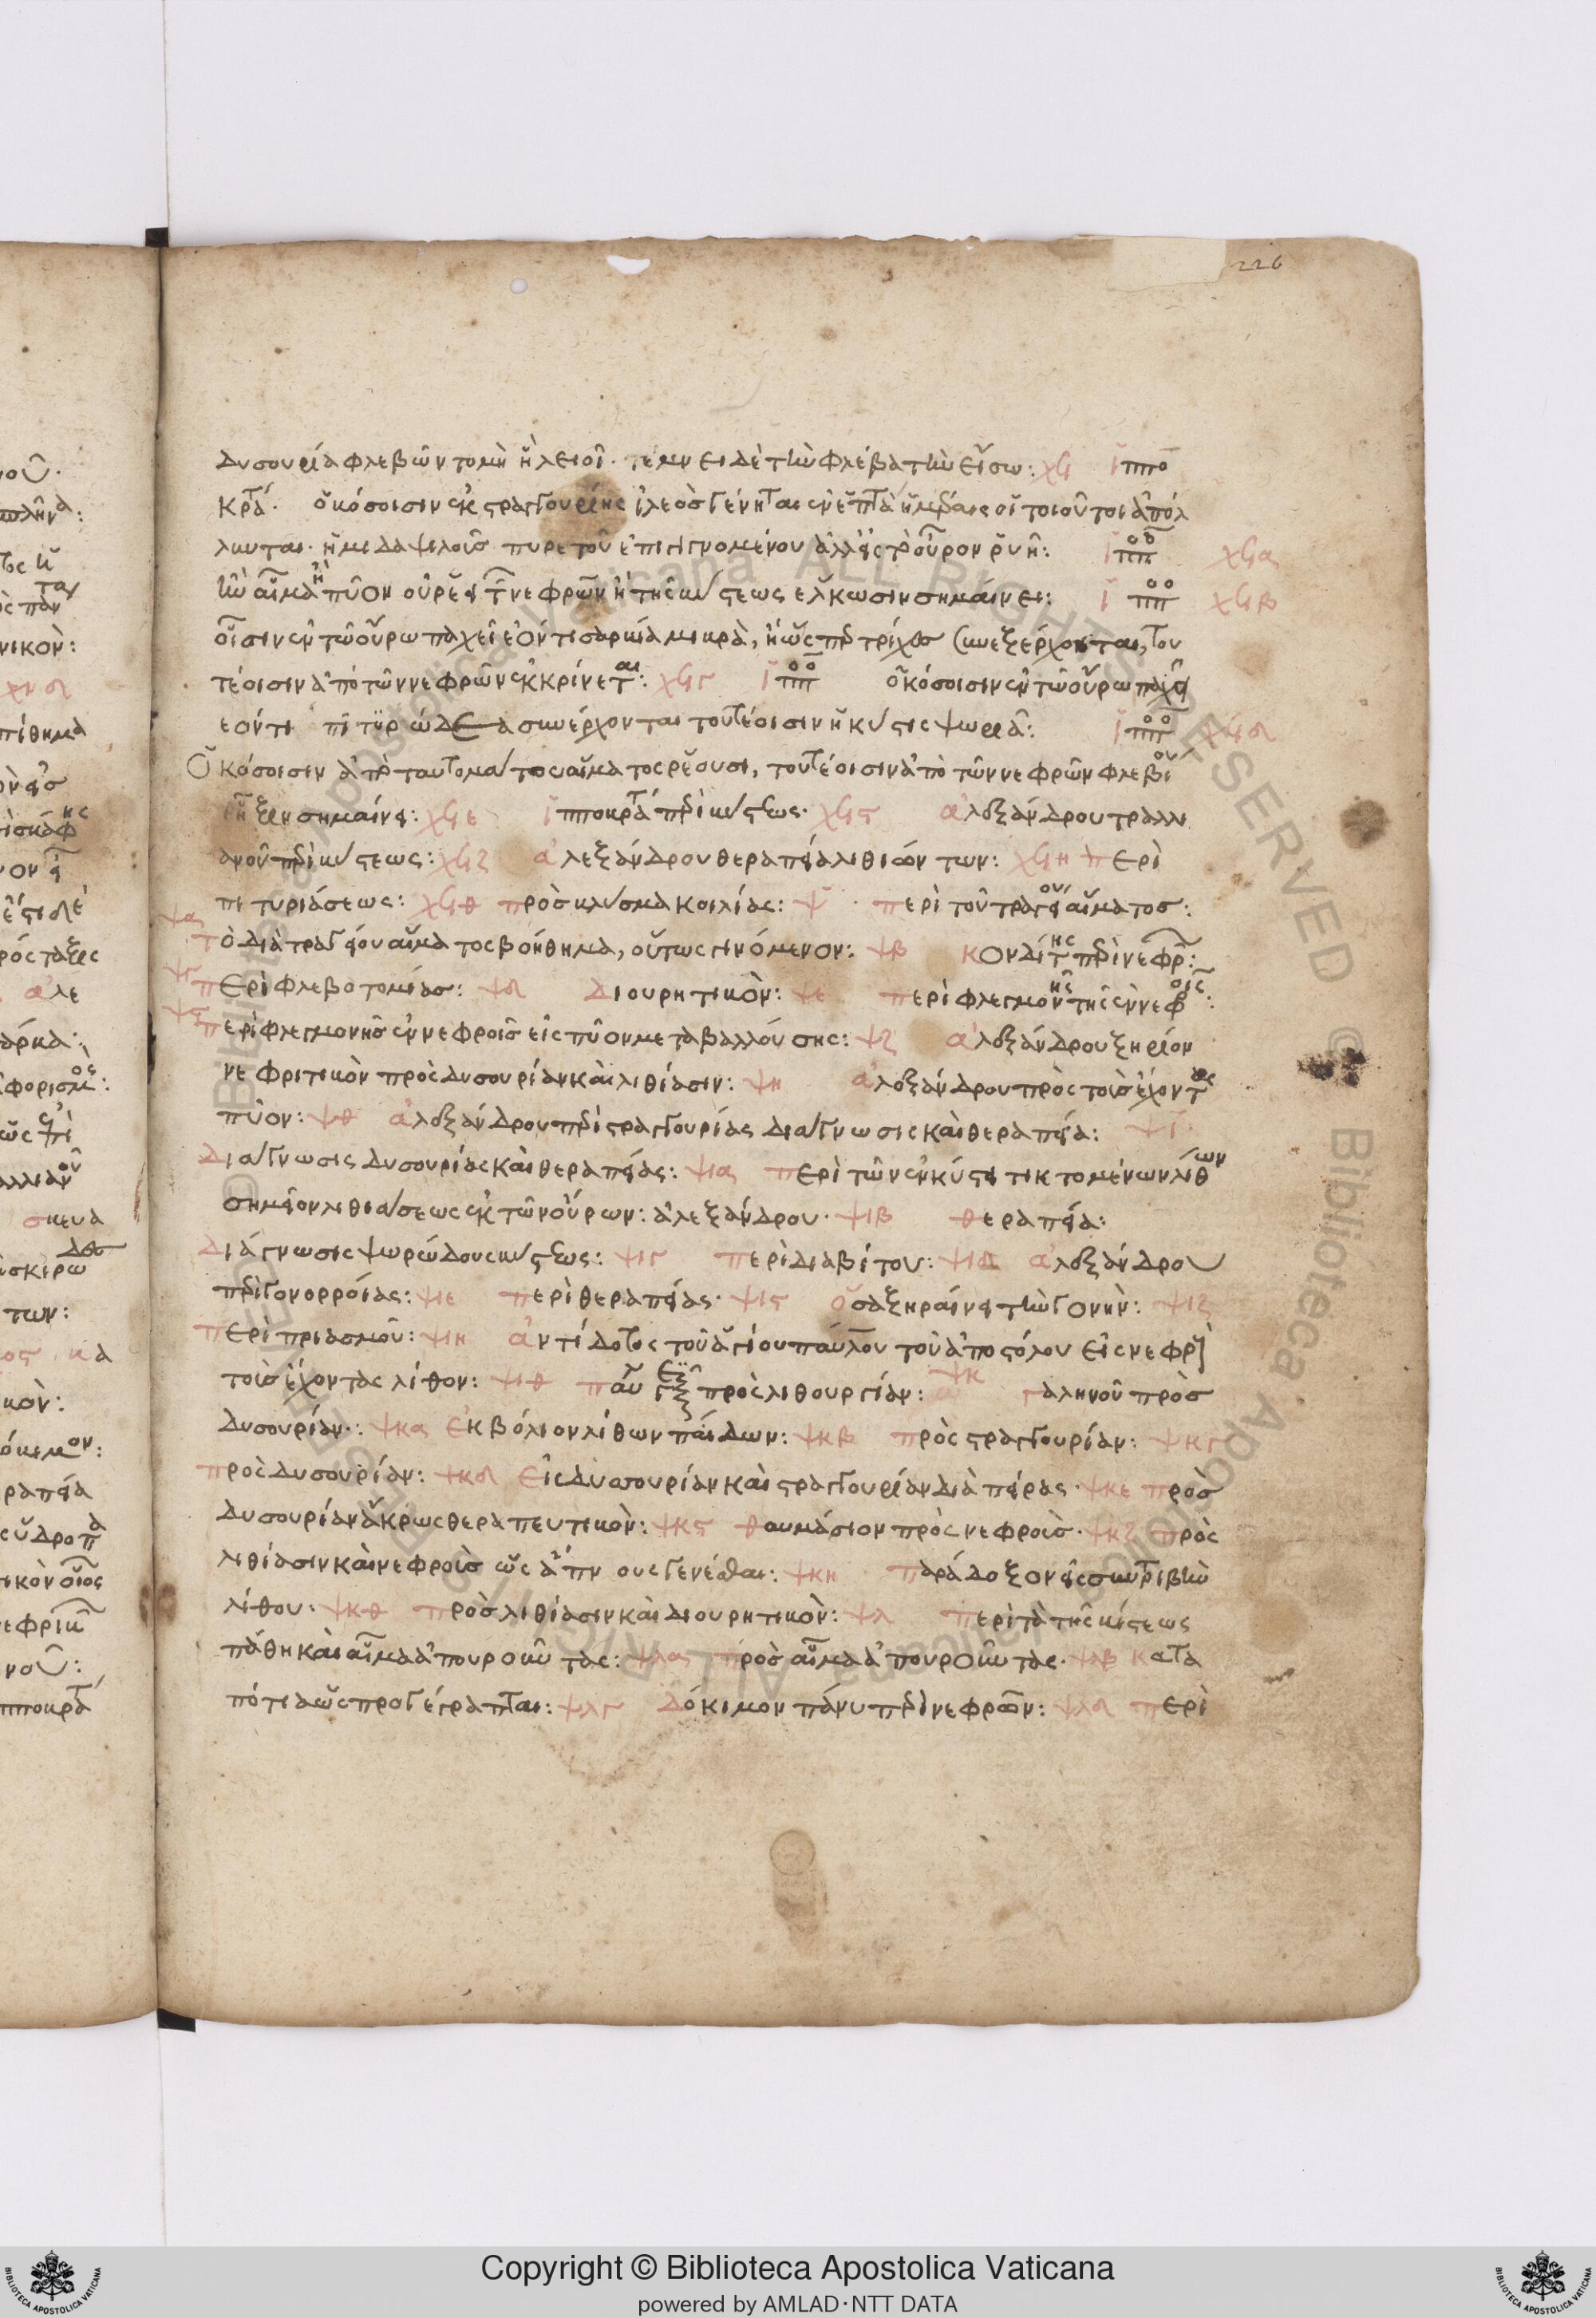 226
δυσουρία φλεβῶν τομὴ ἢ λειοῖ· τέμνει δὲ τὴν φλέβα τὴν εἴσω: χϟ ἱππο
κρά· ὁκόσοισιν ἐκ στραγγουρίης ἰλεὸς γένηται ἐν ἑπτὰ ἡμέραις οἵτοι οὗτοι ἀπόλ
λυνται· πυρετοῦ ἐπιγιγνομένου ἅλις τὸ οὖρον ῥυῆ: ἱππο χϟα
ἢν αἷμα ἢ πύον οὐρέει τῶν νεφρῶν ἢ τῆς κύστεως ἕλκωσιν σημαίνει: ἱππο χϟβ
οἷσιν ἐν τῶ οὔρω παχεῖ ἐόντι σαρκία μικρὰ, ἢ ὥσπερ τρίχες συνεξέρχονται, του
τέοισιν ἀπὸ τῶν νεφρῶν ἐκκρίνεται: χϟγ ἱππο ὁκόσοισιν ἐν τῶ οὔρω παχεῖ
εόντι πιτυρώδεα συνέρχονται τουτέοισιν ἡ κύστις ψωριᾶ: ἱππο χϟδ
Ὁκόσοισιν ἀπὸ ταυτομάτου αἵματος ῥέουσι, τουτέοισιν ἀπὸ τῶν νεφρῶν φλεβίου
ῥῆξιν σημαίνει: χϟε ἱπποκρά περὶ κύστεως· χϟς ἀλεξάνδρου τραλλι
ανοῦ περὶ κύστεως: χϟζ ἀλεξάνδρου θεραπεία λιθιώντων: χϟη περὶ
πιτυριάσεως: χϟθ πρὸς κλύσμα κοιλίας: ψ περὶ τοῦ τραγείου αἵματος:
ψα τὸ διὰ τραγείου αἵματος βοήθημα, οὕτως γινόμενον: ψβ κονδίτης περὶ νεφρ:
ψγ περὶ φλεβοτομίας: ψδ διουρητικὸν: ψε περὶ φλεγμονῆς τῆς ἐν νεφροῖς:
ψς περὶ φλεγμονῆς ἐν νεφροῖς εἰς πῦον μεταβαλλούσης: ψζ ἀλεξάνδρου ξηρίον
νεφριτικὸν πρὸς δυσουρίαν καὶ λιθίασιν: ψη ἀλεξάνδρου πρὸς τοὺς ἔχοντας
πῦον: ψθ ἀλεξάνδρου περὶ στραγγουρίας διάγνωσις καὶ θεραπεία: ψι
διάγνωσις δυσουρίας καὶ θεραπείας: ψια περὶ τῶν ἐν κύστει τικτομένων λίθων
σημεῖον λιθιάσεως ἐκ τῶν οὔρων: ἀλεξάνδρου· ψιβ θεραπεία:
διάγνωσις ψωρώδους κύστεως: ψιγ περὶ διαβίτου: ψιδ ἀλεξάνδρου
περὶ γονορροίας: ψιε περὶ θεραπείας· ψις ὅσα ξηραίνει τὴν γονὴν: ψιζ
περὶ πριασμοῦ: ψιη ἀντίδοτος τοῦ ἁγίου παύλου τοῦ ἀποστόλου εἰς νεφρ
τοὺς ἔχοντας λίθον: ψιθ παυ πρὸς λιθουργίαν: ψκ γαληνοῦ πρὸς
δυσουρίαν: ψκα ἐκβόλιον λίθων παίδων: ψκβ πρὸς στραγγουρίαν: ψκγ
πρὸς δυσουρίαν: ψκδ εἰς δυσουρίαν καὶ στραγγουρίαν διὰ πείρας· ψκε πρὸς
δυσουρίαν ἄκρως θεραπευτικὸν: ψκς θαυμάσιον πρὸς νεφροὺς· ψκζ πρὸς
λιθίασιν καὶ νεφροὺς ὡς ἀπόνους γενέσθαι: ψκη παράδοξον εἰς συντριβὴν
λίθου· ψκθ πρὸς λιθίασιν καὶ διουρητικὸν: ψλ περὶ τὰ τῆς κίστεως
πάθη καὶ αἷμα ἀπουροῦντας: ψλα πρὸς αἷμα ἀπουροῦντας· ψλβ κατα
πότια ὡς προγέγραπται: ψλγ δόκιμον πάνυ περὶ νεφρῶν: ψλδ περὶ
Copyright © Biblioteca Apostolica Vaticana
powered by AMLAD·NTT DATA